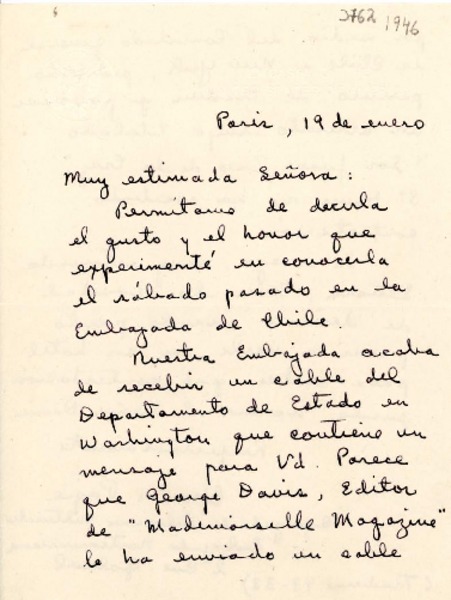 3762 1946
Paris, 19 de enero
Muy estimada Señora:
Permítame de decirla
el gusto y el honor que
experimenté en conocerla
el sábado pasado en la
Embajada de Chile.
Nuestra Embajada acaba
de recebir un cable del
Departamento de Estado en
Washington que contiene un
mensaje para Vd. Parece
que George Davis, Editor
de "Mademoiselle Magazine"
le ha enviado un cable